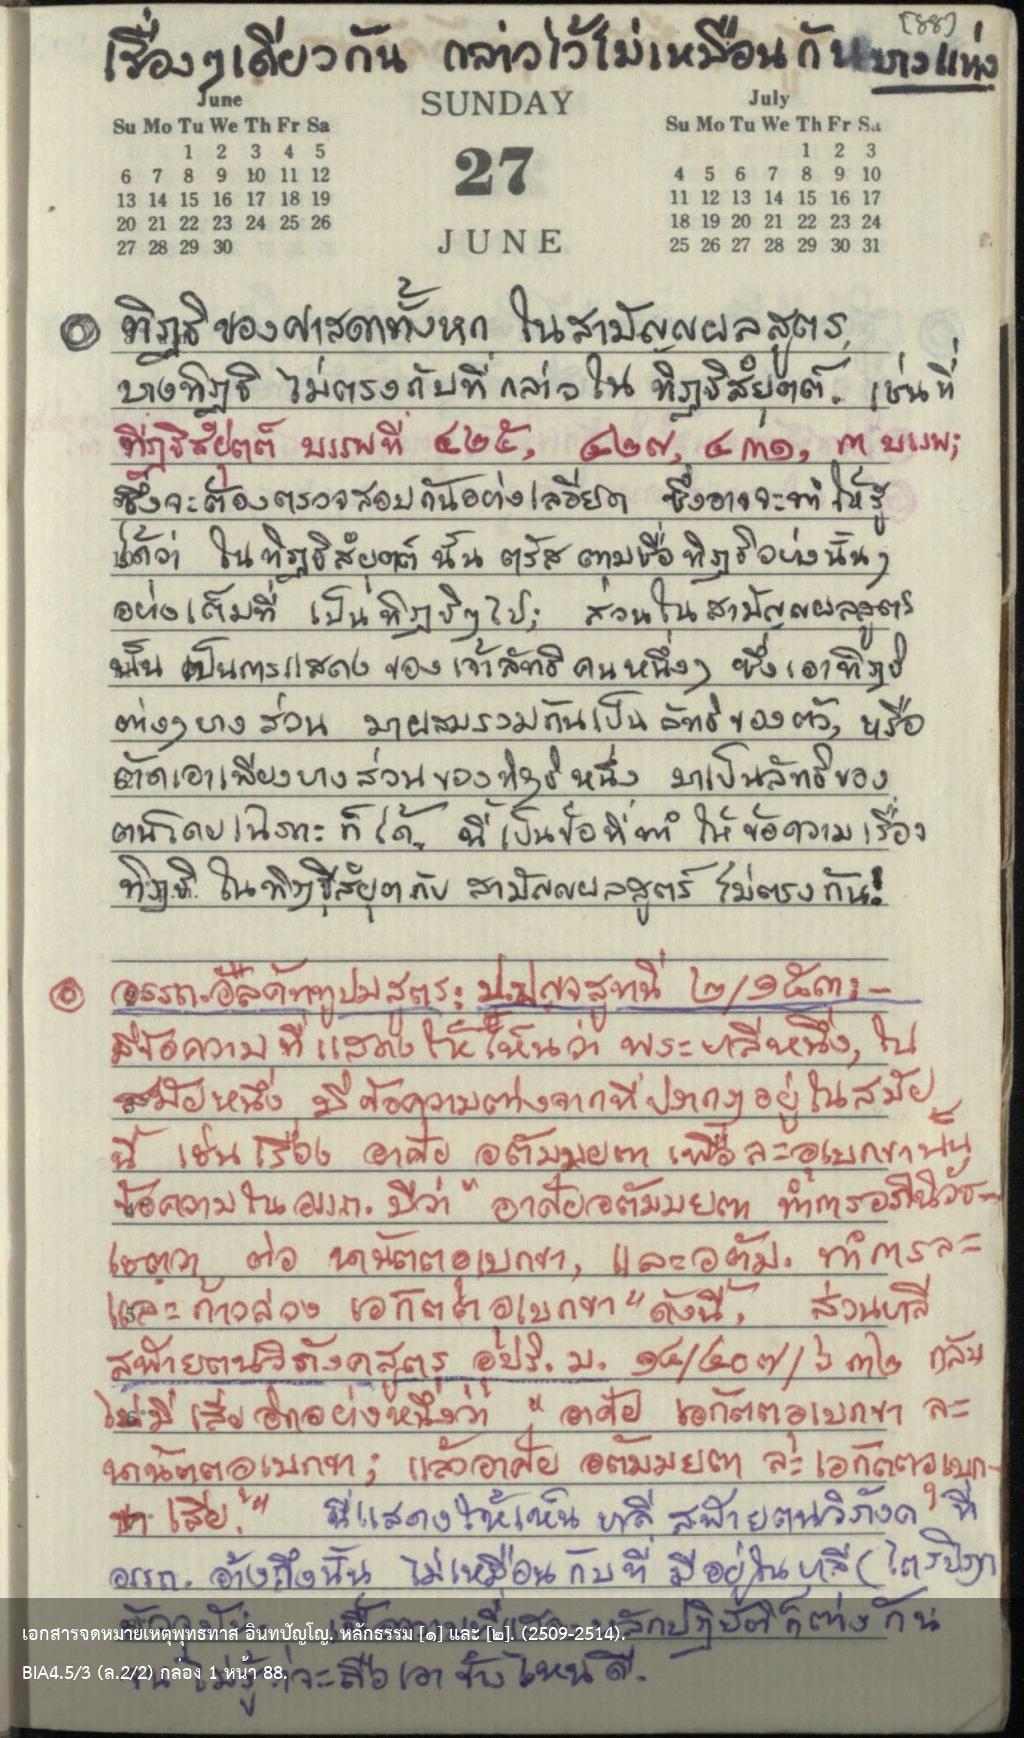 [88]
เรื่องๆเดียวกัน กล่าวไว้ไม่เหมือนกันบางแห่ง
June
Su Mo Tu We Th Fr Sa
1 2 3 4 5
6 7 8 9 10 11 12
13 14 15 16 17 18 19
20 21 22 23 24 25 26
27 28 29 30
SUNDAY
27
JUNE
July
Su Mo Tu We Th Fr Sa
1 2 3
4 5 6 7 8 9 10
11 12 13 14 15 16 17
18 19 20 21 22 23 24
25 26 27 28 29 30 31
ทิฏฐิของศาสดาทั้งหก ในสามัญญผลสูตร,
บางทิฏฐิ ไม่ตรงกับที่กล่าวใน ทิฏฐิสํยุตต์. เช่นที่
ทิฏฐิสํยุตต์ บรรพที่ ๔๒๕, ๔๒๗, ๔๓๑, ๓ บรรพ;
ซึ่งจะต้องตรวจสอบกันอย่างเลอียด ซึ่งอาจจะทำให้รู้
ได้ว่า ในทิฏฐิสํยุตต์นั้น ตรัสตามชื่อทิฏฐิอย่างนั้นๆ
อย่างเต็มที่ เป็นทิฏฐิๆไป; ส่วนในสามัญญผลสูตร
นั้น เป็นการแสดงของเจ้าลัทธิคนหนึ่งๆ ซึ่งเอาทิฏฐิ
ต่างๆบางส่วน มาผสมรวมกันเป็นลัทธิของตัว, หรือ
ตัดเอาเพียงบางส่วนของทิฏฐิหนึ่ง มาเป็นลัทธิของ
ตนโดยเฉพาะก็ได้. นี่เป็นข้อที่ทำให้ข้อความเรื่อง
ทิฏฐิ ในทิฏฐิสํยุตกับ สามัญญผลสูตร์ ไม่ตรงกัน!
อรรถ.อลคัททูปมสูตร; ปปญจสูทนี ๒/๑๕๓:-
มีข้อความที่แสดงให้เห็นว่า พระบาลีหนึ่ง, ใน
สมัยหนึ่ง มีข้อความต่างจากที่ปรากฏอยู่ในสมัย
นี้ เช่นเรื่อง อาศัย อตัมมยตา เพื่อละอุเบกขานั้น
ข้อความในอรรถ. มีว่า "อาศัยอตัมมยตา ทำการ
ต่อ นานัตตอุเบกขา, และอตัม. ทำการละ
และก้าวล่วง เอกัตตอุเบกขา" ดังนี้, ส่วนบาลี
สฬายตนวิภังคสูตร อุปริ.ม. ๑๔/๔๐๗/๖๓๒ กลับ
ไปมีเสียอีกอย่างหนึ่งว่า "อาศัย เอกัตตอุเบกขา ละ
นานัตตอุเบกขา; แล้วอาศัย อตัมมยตา ละเอกัตตอุเบก-
ขา เสีย." นี่แสดงให้เห็น บาลีสฬายตนวิภังค ที่
อรรถ. อ้างถึงนั้น ไม่เหมือนกับที่มีอยู่ในบาลี(ไตรปิฎก
หลักปฏิบัติก็ต่างกัน
ไม่รู้ว่าจะถือเอาข้างไหนดี.
เอกสารจดหมายเหตุพุทธทาส อินทปัญโญ. หลักธรรม [๑] และ [๒]. (2509-2514).
BIA4.5/3 (ล.2/2) กล่อง 1 หน้า 88.